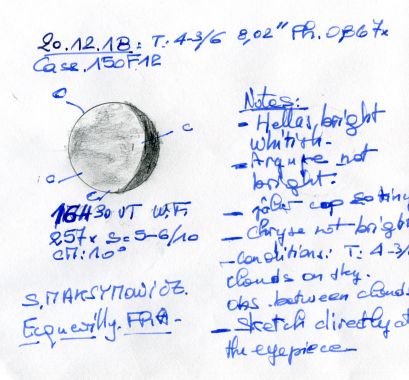 20.12.18: T: 4-3/6 8,02" Ph. 0,867x
Case.150F12
Notes:
- Hellas bright
whitish.
- Argyre not
bright.
- polar cap so tiny
- Chryse not bright
- conditions: T: 4-3/
clouds on sky.
obs. between clouds
- Sketch directly at
the eyepiece
c
o
e
1630 UT W:Fi
257x S=5-6/10
CM: 10°
S.MAKSYMOWICZ.
Ecquevilly. FRA-